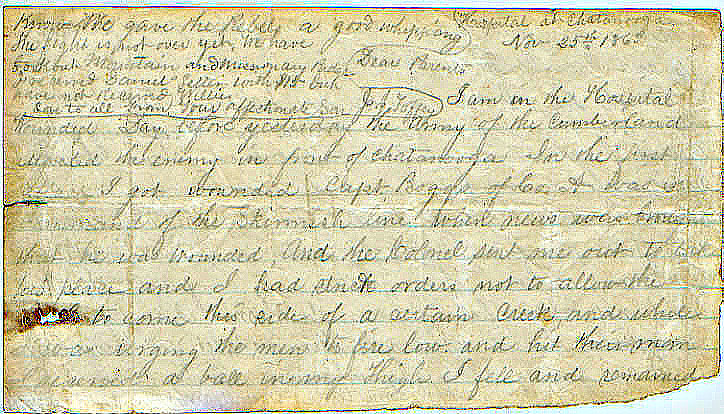 Hospital at Chatanooga
Nov 25th 1863
We gave the Rebels a good whipping
The fight is not over yet, We have
Lookout Mountain and Missionary
received Daniel letter with the
have not received
love to all from Your affectionate Son
Dear Parents
I am in the Hospital
wounded Day before yesterday the Army of the Cumberland
attacked the enemy in front of Chatanooga In the first
I got wounded Capt. Boggs of Co. A was in
command of the skirmish line when news was
that he was wounded, and the Colnel sent me out to take
his place and I had strict orders not to allow the
to come this side of a certain Creek, and while
I was urging the men to fire low and hit their man
a ball in my thigh I fell and remained